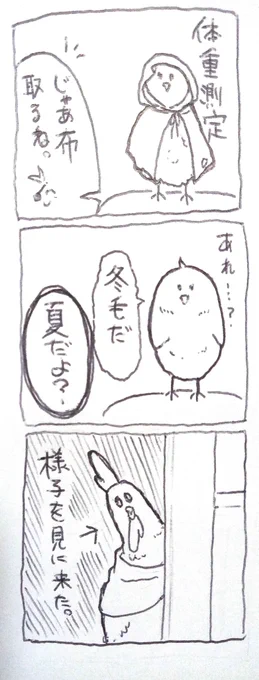 体重測定
じゃあ布
取るね。
あれ…?
冬毛だ
夏だよ?
様子を見に来た。